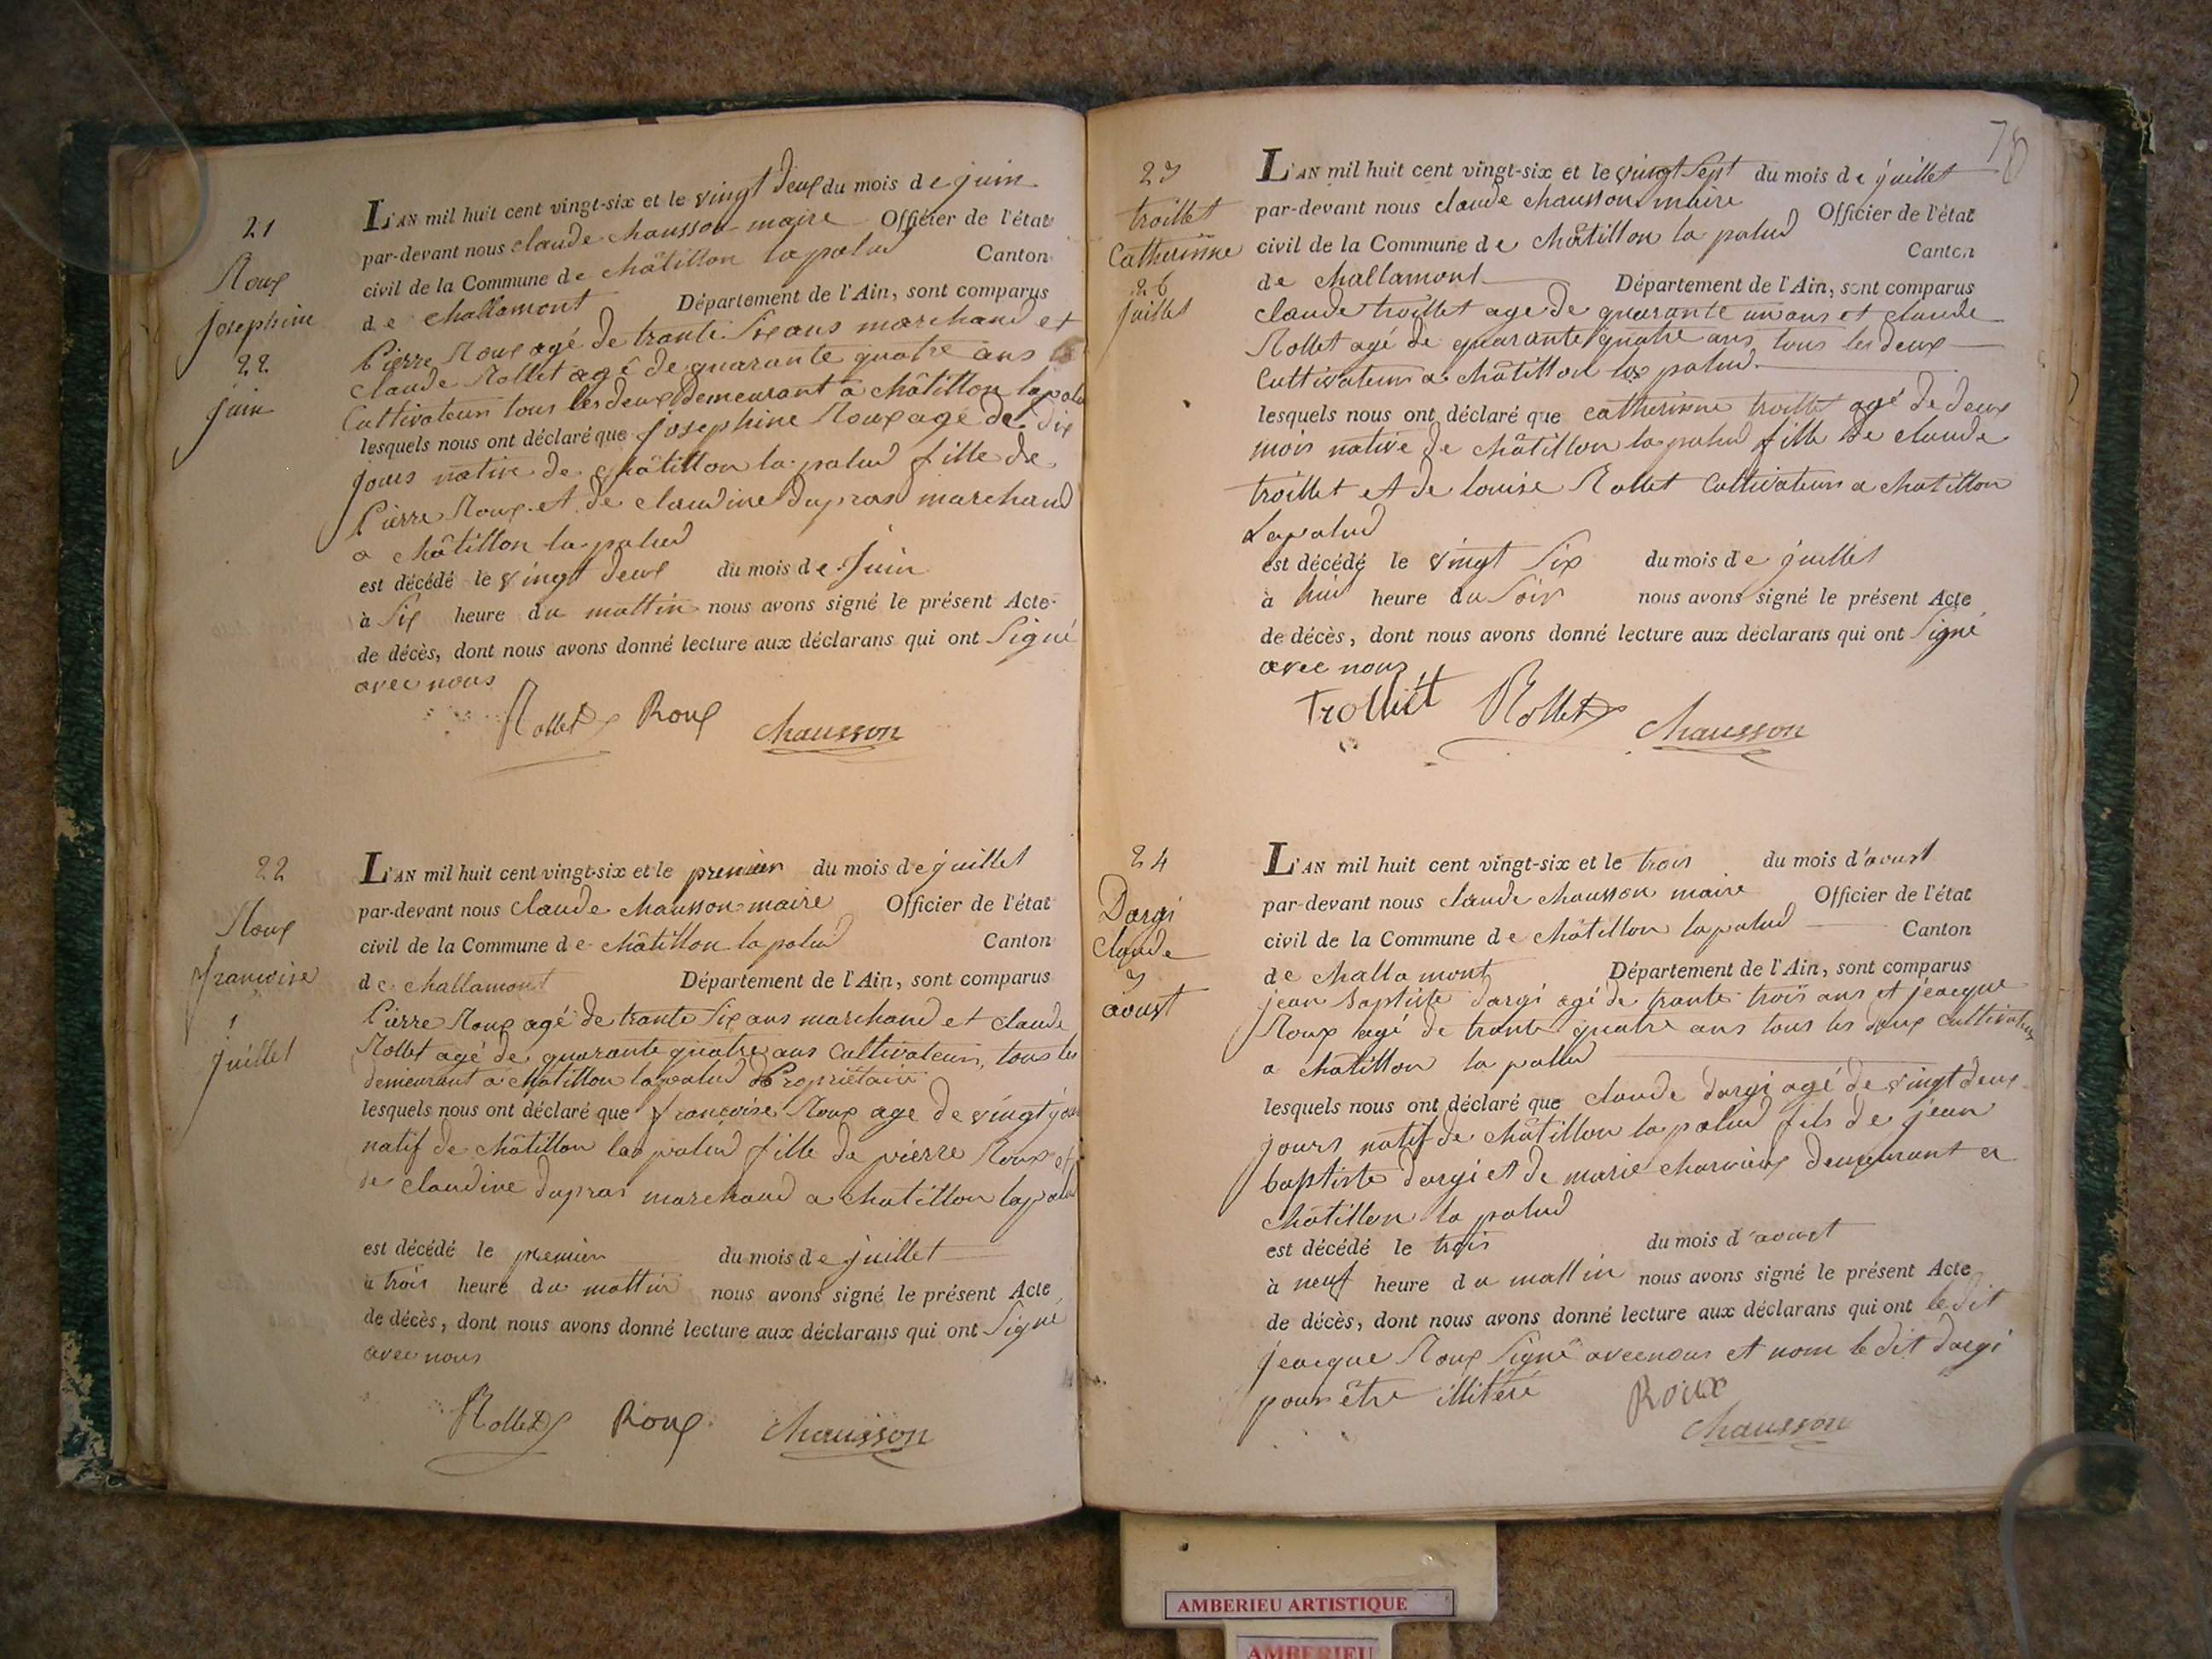 21
Roux
josephine
22
juin
L'AN mil huit cent vingt-six et le vingt deux du mois de juin
par-devant nous claude chausson maire Officier de l'état
civil de la Commune de châtillon la palud Canton
de challamont Département de l'Ain, sont comparus
Pierre Roux agé de trante Six ans marchand et
claude Rollet agé de quarante quatre ans
Cultivateur tous les deux Demeurant a châtillon lapalu
lesquels nous ont déclaré que josephine Roux agé de dix
jours native de châtillon la palud fille de
Pierre Roux et de claudine dupras marchand
a châtillon la palud
est décédé le vingt deux du mois de Juin
à Six heure du mattin nous avons signé le présent Acte
de décès, dont nous avons donné lecture aux déclarans qui ont Signé
avec nous
Rollet Roux chausson
22
Roux
françoise
1
juillet
L'AN mil huit cent vingt-six et le premier du mois de juillet
par-devant nous claude chausson maire Officier de l'état
civil de la Commune de châtillon la palud Canton
de challamont Département de l'Ain, sont comparus
Pierre Roux agé de trante Six ans marchand et claude
Rollet agé de quarante quatre ans Cultivateur, tous les
demeurant a châtillon lapalud Propriétair
lesquels nous ont déclaré que françoise Roux age de vingt jour
natif de châtillon la palud fille de pierre Roux et
de claudine dupras marchand a chatillon lapalud
est décédé le premier du mois de juillet
à trois heure du mattin nous avons signé le présent Acte
de décès, dont nous avons donné lecture aux déclarans qui ont Signé
avec nous
Rollet Roux chausson
78
23
troillet
Catherinne
26
juillet
L'AN mil huit cent vingt-six et le vingt Sept du mois de juillet
par-devant nous claude chausson maire Officier de l'état
civil de la Commune de châtillon la palud Canton
de challamont Département de l'Ain, sont comparus
claude troillet age de quarante un ans et claude
Rollet agé de quarante quatre ans tous les deux
Cultivateurs a châtillon la palud
lesquels nous ont déclaré que catherinne troillet agé de deux
mois native de châtillon la palud fille de claude
troillet et de louise Rollet Cultivateurs a chatillon
Lapalud
est décédé le vingt Six du mois de juillet
à huit heure du Soir nous avons signé le présent Acte
de décès, dont nous avons donné lecture aux déclarans qui ont Signé
avec nous
Trolliét Rollet chausson
24
Dargi
Claude
3
avust
L'AN mil huit cent vingt-six et le trois du mois d'avust
par-devant nous claude chausson maire Officier de l'état
civil de la Commune de châtillon lapalud Canton
de challamont Département de l'Ain, sont comparus
jean Baptiste dargi agé de trante trois ans et jeacque
Roux agé de trante quatre ans tous les deux cultivateur
a chatillon la palud
lesquels nous ont déclaré que claude dargi agé de vingt deux
jours natif de châtillon la palud fils de jean
baptiste dargi et de marie charvieux demeurant a
châtillon la palud
est décédé le trois du mois d'avust
à neuf heure du mattin nous avons signé le présent Acte
de décès, dont nous avons donné lecture aux déclarans qui ont ledit
jeacque Roux Signé avec nous et nom le dit dargi
pour être illitéré Roux
chausson
AMBERIEU ARTISTIQUE
AMBERIEU